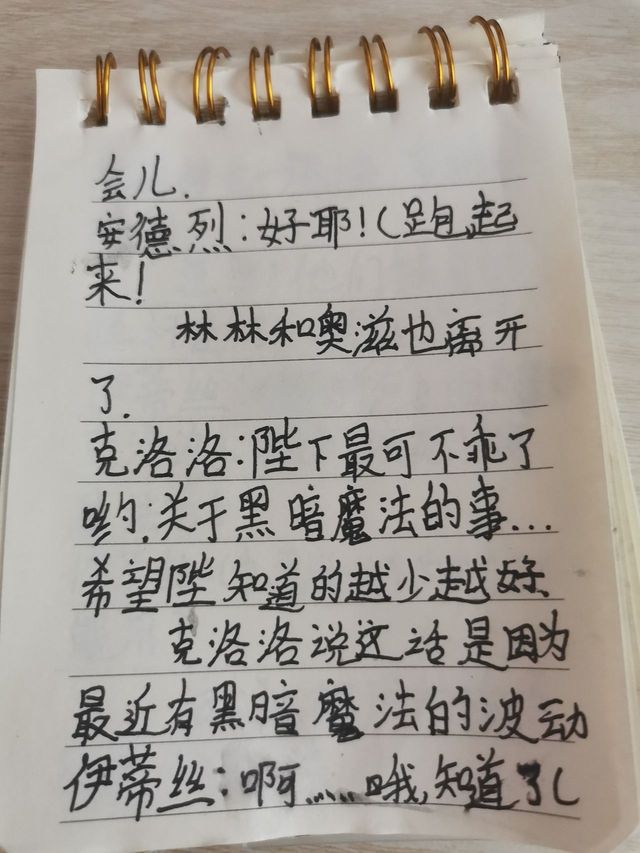 会儿.
安德烈:好耶!(跑起
来!
林林和奥滋也离开
了.
克洛洛:陛下最可不乖了
哟.关于黑暗魔法的事...
希望陛知道的越少越好.
克洛洛说这话是因为
最近有黑暗魔法的波动
伊蒂丝:啊......哦,知道了(